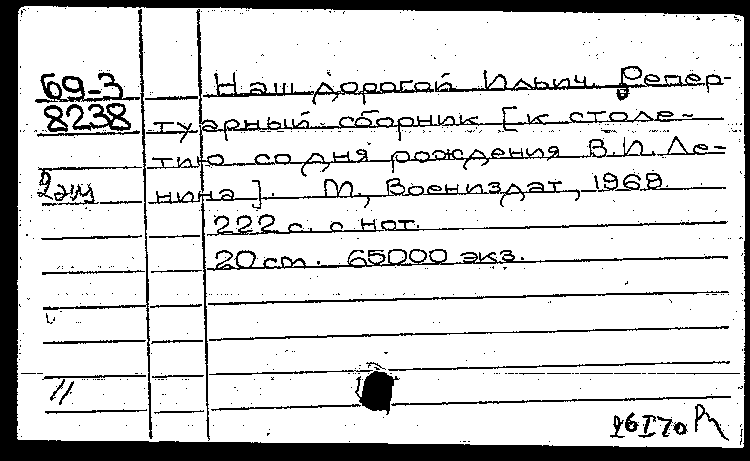 69-3 Наш дорогой Ильич. Репер-
8238 туарный сборник [к столе-
тию со дня рождения В.И. Ле-
2 экз нина]. М., Воениздат, 1969.
222 с. с нот.
20 см. 65000 экз.
//
26 I 70